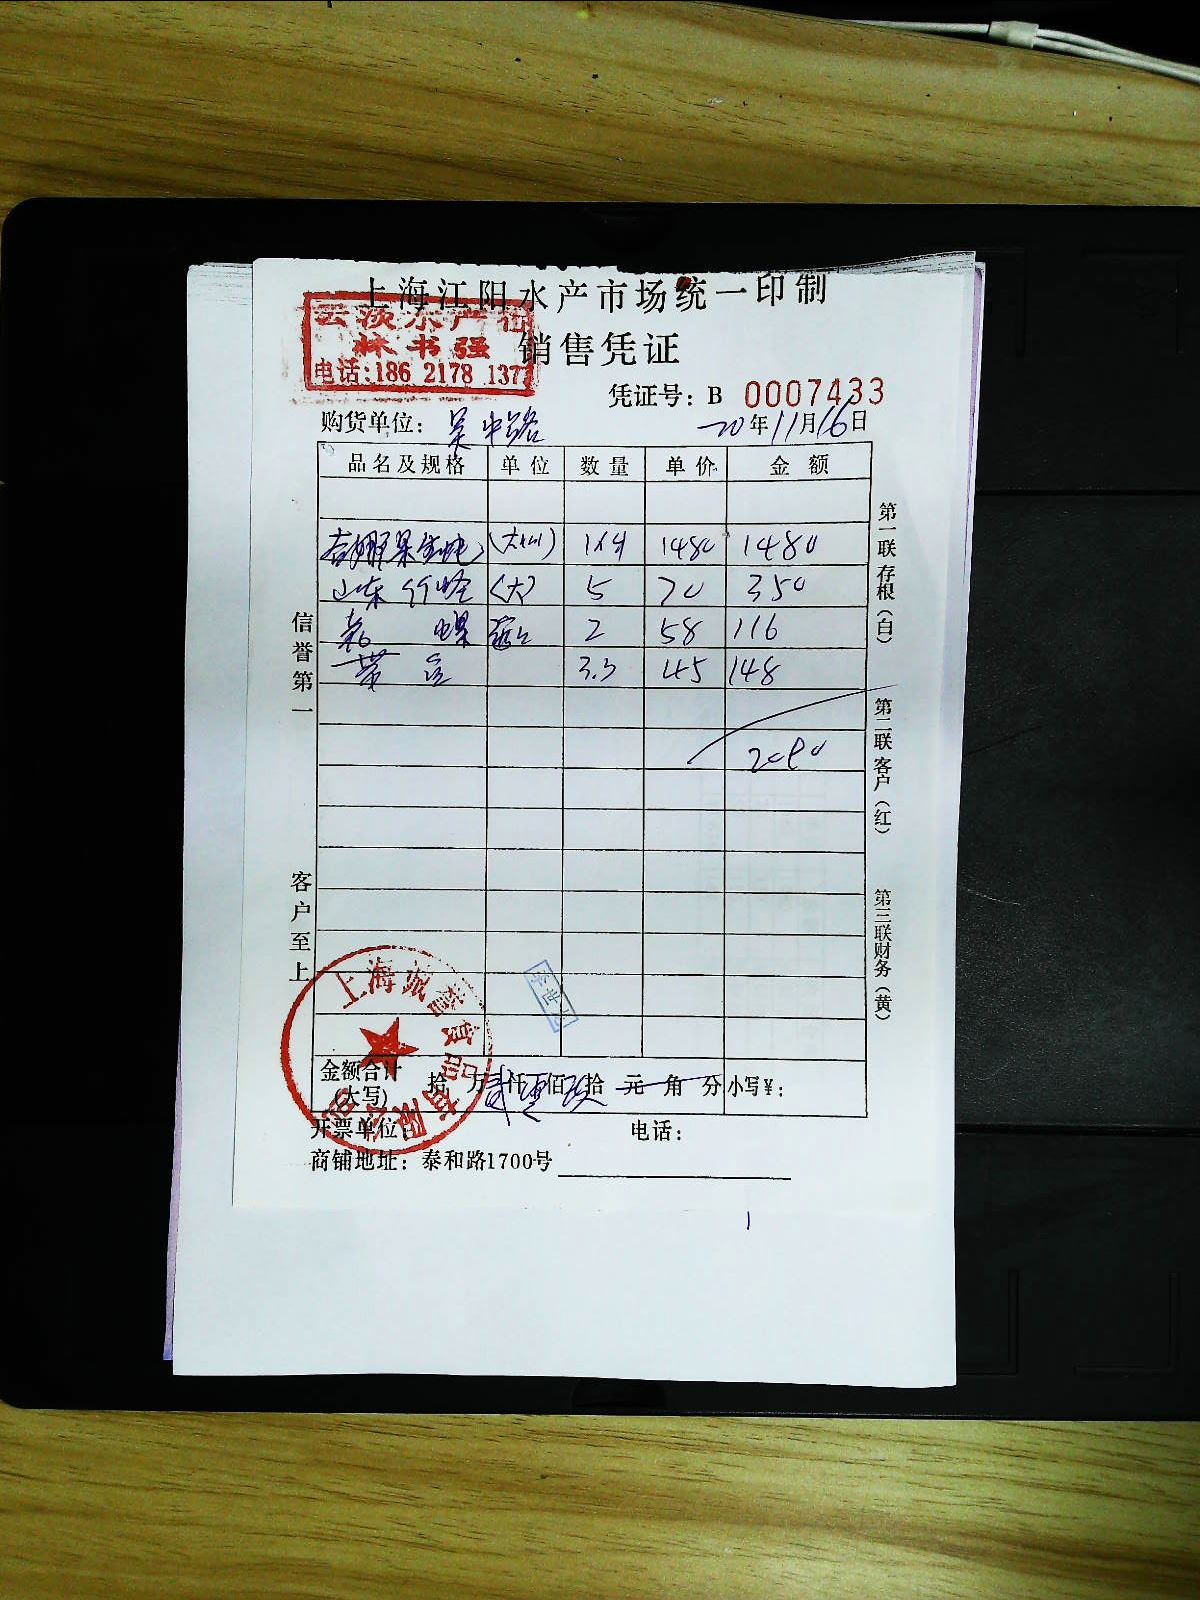 上海江阳水产市场统一印制
云淡水产行
林书强
电话:186 2178 1377
销售凭证
凭证号: B 0007433
购货单位: 吴中路
20年11月16日
品名及规格 单位 数量 单价 金额
生蚝 1 1480 1480
山东 (大) 5 70 350
螺 2 58 116
3.3 45 148
2090
第一联 存根(白)
第二联 客户(红)
第三联 财务(黄)
信誉第一
客户至上
上海诚 食品有限公司
金额合计 (大写) 拾 万 贰仟 零佰 玖拾 元 角 分 小写¥:
开票单位: 电话:
商铺地址: 泰和路1700号